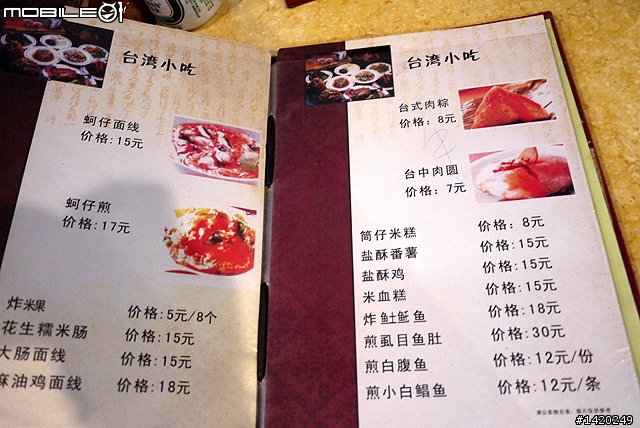 MOBILE01
台湾小吃
蚵仔面线
价格:15元
蚵仔煎
价格:17元
炸米果 价格:5元/8个
花生糯米肠 价格:15元
大肠面线 价格:15元
麻油鸡面线 价格:18元
台湾小吃
台式肉粽
价格:8元
台中肉圆
价格:7元
筒仔米糕 价格:8元
盐酥番薯 价格:15元
盐酥鸡 价格:15元
米血糕 价格:15元
炸鱼 价格:18元
煎虱目鱼肚 价格:30元
煎白腹鱼 价格:12元/份
煎小白鲳鱼 价格:12元/条
#1420249